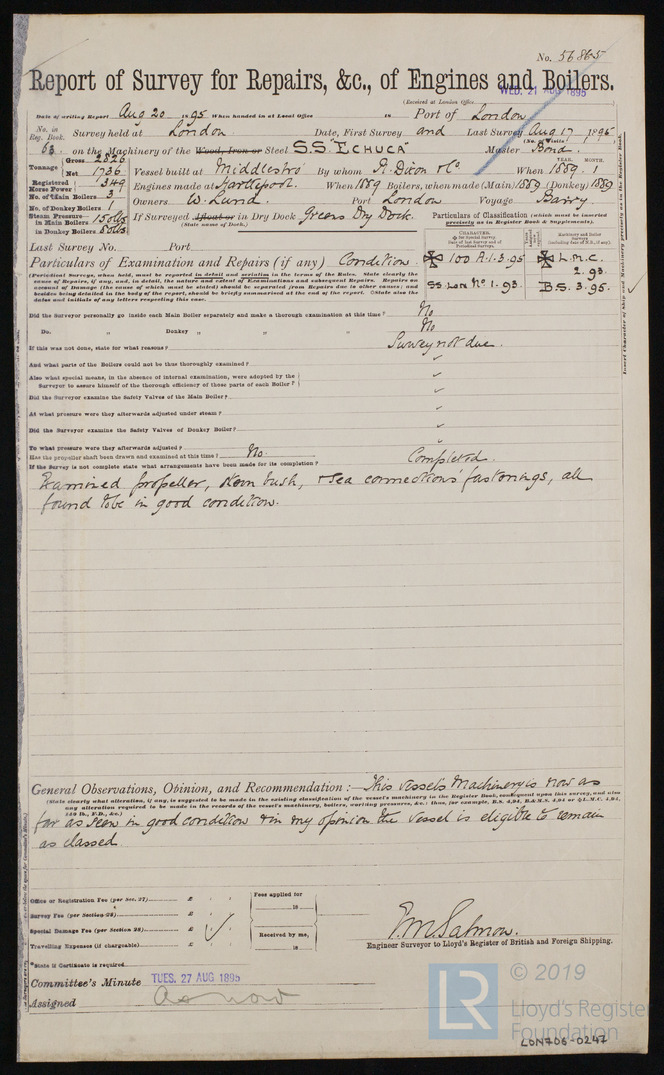 No. 56865
Report of Survey for Repairs, &c., of Engines and Boilers.
WED. 21 AUG 1895
(Received at London Office
Date of writing Report Aug 20 1895 When handed in at Local Office 18 Port of London
No. in Reg. Book. 63 Survey held at London Date, First Survey and Last Survey Aug 17 1895
(No. of Visits )
on the Machinery of the Wood, Iron or Steel S.S "ECHUCA" Master Bond
Tonnage Gross 2826 Net 1736
Vessel built at Middlesbro' By whom R. Dixon & Co. When YEAR. 1889 MONTH. 1
Registered Horse Power 349
Engines made at Hartlepool. When 1889 Boilers, when made (Main) 1889 (Donkey) 1889
No. of Main Boilers 3
No. of Donkey Boilers 1
Owners W. Lund. Port London Voyage Barry.
Steam Pressure in Main Boilers 150 lbs
in Donkey Boilers 80 lbs
If Surveyed Afloat or in Dry Dock Greens Dry Dock.
(State name of Dock.)
Particulars of Classification (which must be inserted precisely as in Register Book & Supplements).
Last Survey No. Port
CHARACTER.
Machinery and Boiler Surveys (including date of N.B., if any).
100 A.1. 3.95
L.M.C. 2.93.
SS. Lon No 1-93.
B.S. 3.95.
Particulars of Examination and Repairs (if any) Condition.
(Periodical Surveys, when held, must be reported in detail and seriatim in the terms of the Rules. State clearly the
cause of Repairs, if any, and, in detail, the nature and extent of Examinations and subsequent Repairs. Repairs on
account of Damage (the cause of which must be stated) should be separated from Repairs due to other causes; and
besides being detailed in the body of the report, should be briefly summarised at the end of the report. State also the
dates and initials of any letters respecting this case.
Did the Surveyor personally go inside each Main Boiler separately and make a thorough examination at this time? No
Do. " Donkey " " " No
If this was not done, state for what reasons? Survey not due.
And what parts of the Boilers could not be thus thoroughly examined?
Also what special means, in the absence of internal examination, were adopted by the
Surveyor to assure himself of the thorough efficiency of those parts of each Boiler?
Did the Surveyor examine the Safety Valves of the Main Boiler?
At what pressure were they afterwards adjusted under steam?
Did the Surveyor examine the Safety Valves of Donkey Boiler?
To what pressure were they afterwards adjusted?
Has the propeller shaft been drawn and examined at this time? No.
If the Survey is not complete state what arrangements have been made for its completion? Completed.
Examined propeller, stern bush, & sea connections' fastenings, all
found to be in good condition.
General Observations, Opinion, and Recommendation:— This vessel's Machinery is now as
(State clearly what alteration, if any, is suggested to be made in the existing classification of the vessel's machinery in the Register Book, consequent upon this survey, and also
any alteration required to be made in the records of the vessel's machinery, boilers, working pressures, &c.: thus, for example, B.S. 4,94, B.&M.S. 4,94 or L.M.C. 4,94,
140 lb., F.D., &c.)
far as seen in good condition & in my opinion the vessel is eligible to remain
as classed
Office or Registration Fee (per Sec. 27) £ : :
Survey Fee (per Section 28) £ : :
Special Damage Fee (per Section 28) £ : :
Travelling Expenses (if chargeable) £ : :
Fees applied for
18
Received by me,
18
F. M. Salmon.
Engineer Surveyor to Lloyd's Register of British and Foreign Shipping.
*State if Certificate is required
Committee's Minute TUES. 27 AUG 1895
Assigned As now
Insert Character of Ship and Machinery precisely as in the Register Book.
LR
© 2019
Lloyd's Register
Foundation
LON706-0247